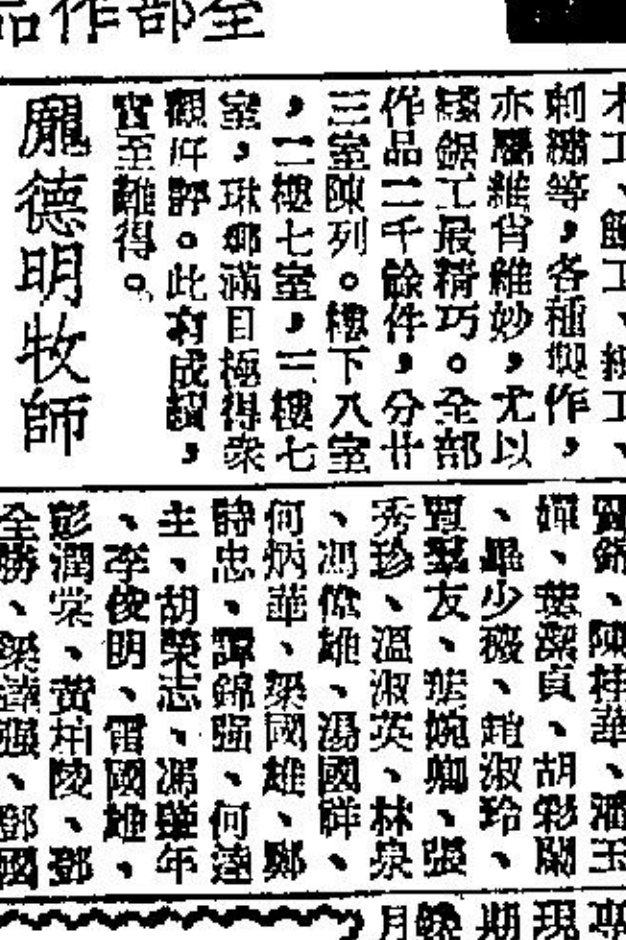 全部作品
木工、
刺繡等，各種製作，
亦屬維肖維妙，尤以
綫鋸工最精巧。全部
作品二千餘件，分廿
三室陳列。樓下八室
，二樓七室，三樓七
室，琳瑯滿目極得衆
觀好評。此有成績，
實至難得。
龐德明牧師
錦、陳桂華、潘玉
嬋、葉潔貞、胡彩蘭
、畢少薇、趙淑玲、
群友、葉婉卿、張
秀珍、溫淑英、林泉
、馮偉雄、湯國群、
何炳華、梁國雄、鄭
詩忠、譚錦强、何達
主、胡榮志、馮肇年
、李俊明、雷國雄、
彭潤棠、黃柏陵、鄧
全勝、梁達强、鄧國
專現期晚月